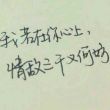 我若在你心上,
情敌三千又何妨